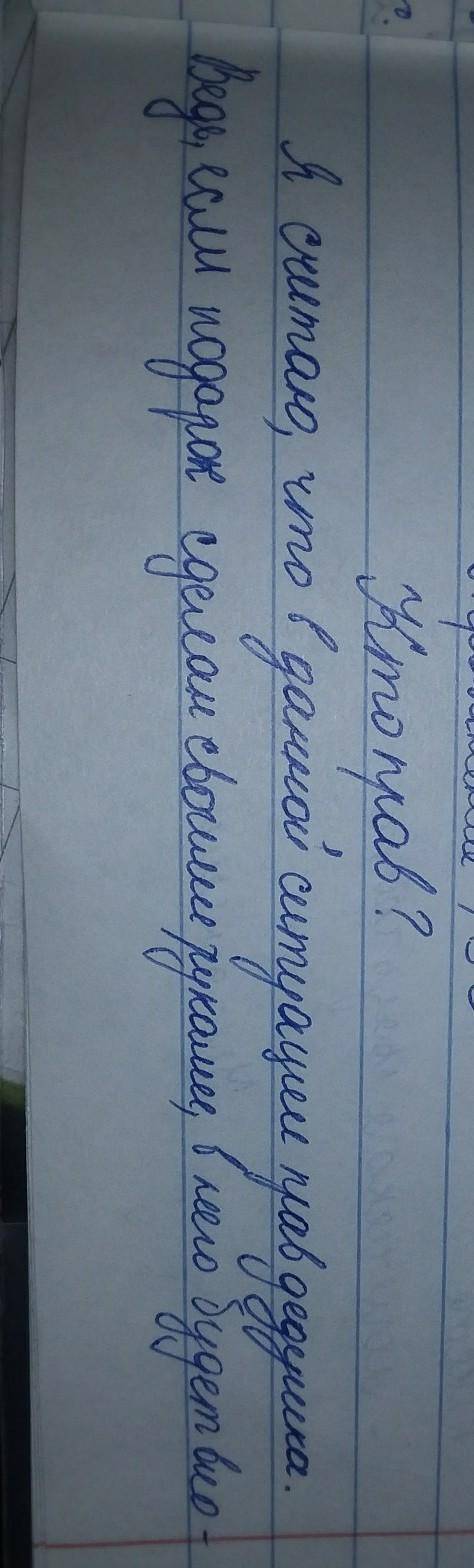 Кто прав?
Я считаю, что в данной ситуации прав дедушка.
Ведь, если подарок сделан своими руками, в него будет вло-